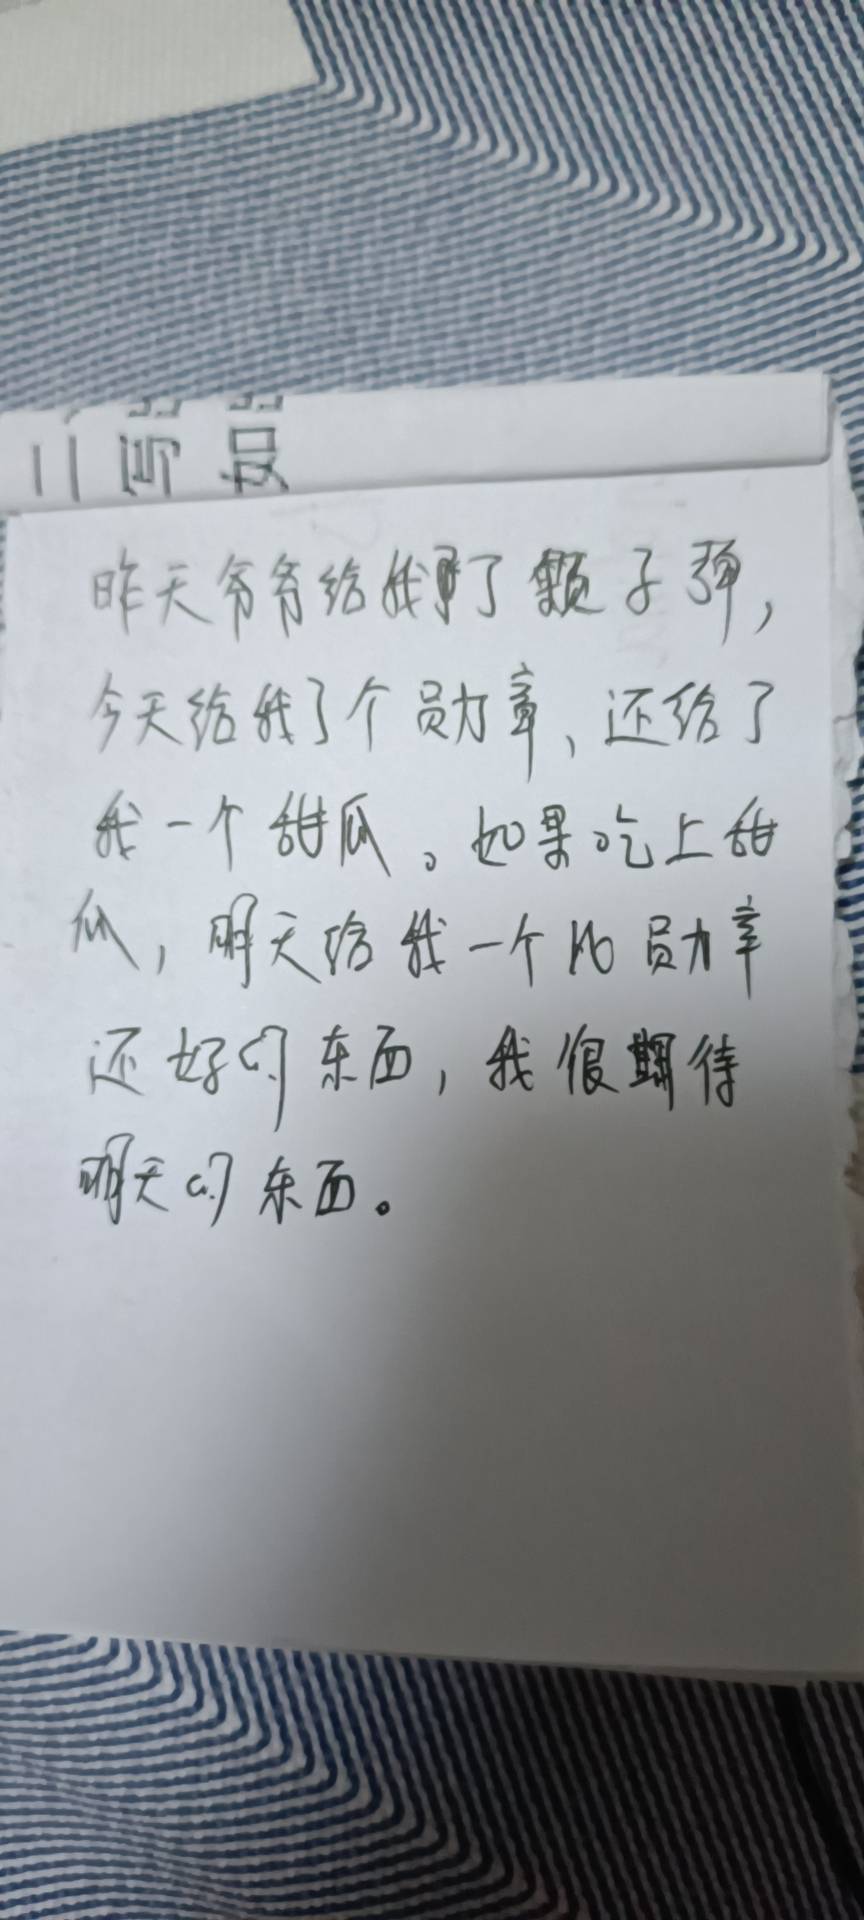 昨天爷爷给我了颗子弹，
今天给我了个勋章，还给了
我一个甜瓜。如果吃上甜
瓜，明天给我一个比勋章
还好的东面，我很期待
明天的东面。